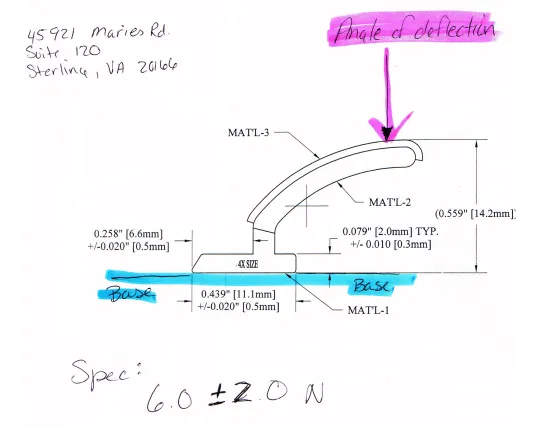 45921 Maries Rd.
Suite 120
Sterling, VA 20166
Angle of deflection
MAT'L-3
MAT'L-2
(0.559" [14.2mm])
0.258" [6.6mm]
+/-0.020" [0.5mm]
0.079" [2.0mm] TYP.
+/- 0.010 [0.3mm]
4X SIZE
Base
Base
0.439" [11.1mm]
+/-0.020" [0.5mm]
MAT'L-1
Spec:
6.0 ±2.0 N